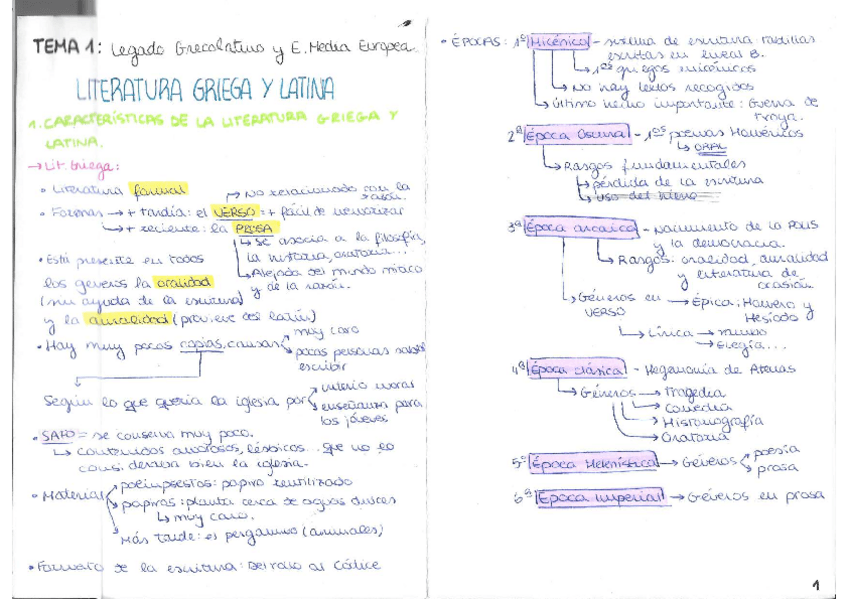 TEMA 1: Legado Grecolatino y E. Media Europea.
LITERATURA GRIEGA Y LATINA
1. CARACTERÍSTICAS DE LA LITERATURA GRIEGA Y
LATINA.
→ Lit. Griega:
• Literatura formal
→ No relacionado con la
razón.
• Formas → + tardía: el VERSO = + fácil de memorizar
→ + reciente: la PROSA
→ Se asocia a la filosofía,
la historia, oratoria...
→ Alejada del mundo mítico
y de la razón.
• Está presente en todos
los géneros la oralidad
(sin ayuda de la escritura)
y la auralidad (proviene del latín)
• Hay muy pocas copias, causas
muy caro
pocas personas sabían
escribir
Según lo que quería la iglesia por
criterio moral
enseñanza para
los jóvenes
• SAFO = se conserva muy poco.
→ Contenidos amorosos, lésbicos... que no lo
consideraba bien la iglesia.
• Material
palimpsestos: papiro reutilizado
papiros: planta cerca de aguas dulces
→ muy caro.
Más tarde: el pergamino (animales)
• Formato de la escritura: Del rollo al Códice
• ÉPOCAS: 1º Micénica - sistema de escritura tablillas
escritas en lineal B.
→ 1ºs griegos micénicos
→ No hay textos recogidos
→ Último hecho importante: Guerra de
Troya.
2ª Época Oscura - 1ºs poemas Homéricos
→ ORAL
→ Rasgos fundamentales
→ pérdida de la escritura
→ uso del hierro
3ª Época arcaica - nacimiento de la POLIS
y la democracia.
→ Rasgos: oralidad, auralidad
y literatura de
ocasión.
→ Géneros en → Épica: Homero y
VERSO Hesíodo
→ Lírica → mundo
→ Elegía...
4ª Época clásica - Hegemonía de Atenas
→ Géneros → Tragedia
→ Comedia
→ Historiografía
→ Oratoria
5ª Época Helenística → Géneros
poesía
prosa
6ª Época Imperial → Géneros en prosa
1